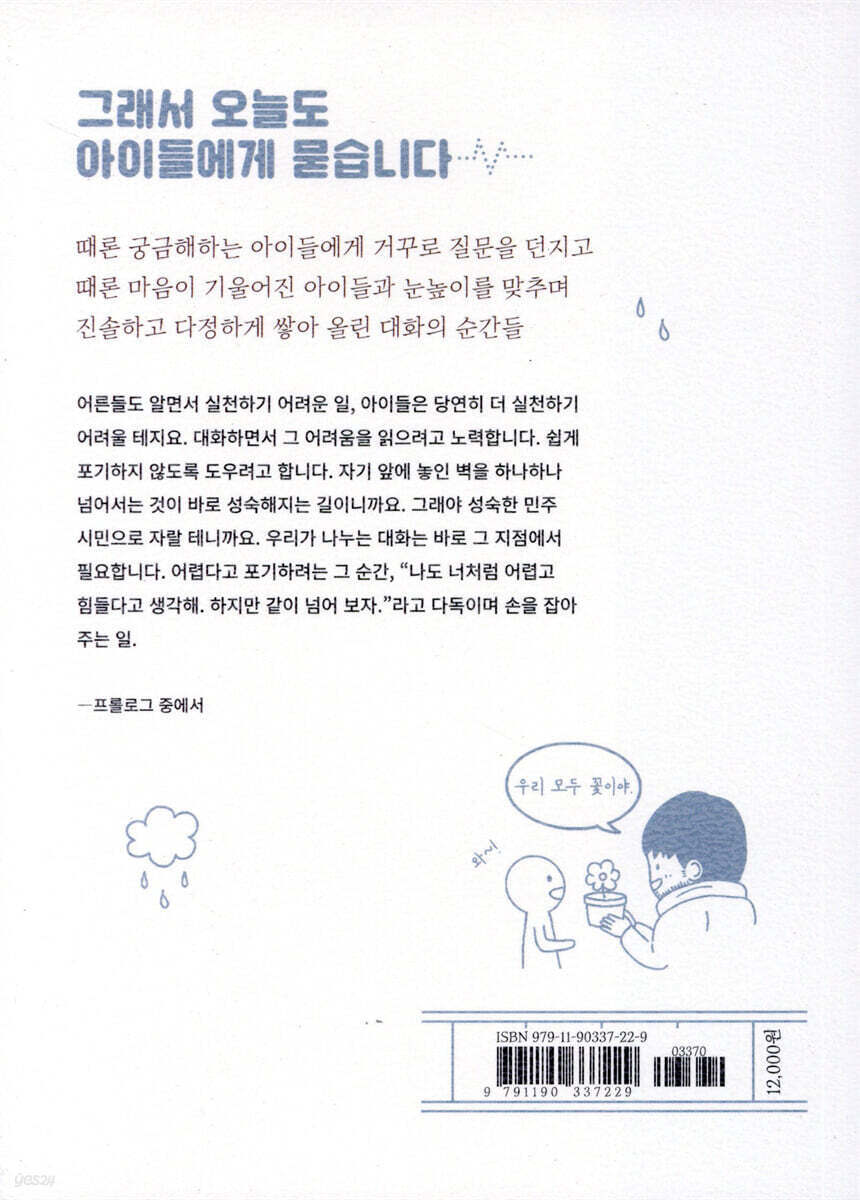 그래서 오늘도
아이들에게 묻습니다
때론 궁금해하는 아이들에게 거꾸로 질문을 던지고
때론 마음이 기울어진 아이들과 눈높이를 맞추며
진솔하고 다정하게 쌓아 올린 대화의 순간들
어른들도 알면서 실천하기 어려운 일, 아이들은 당연히 더 실천하기
어려울 테지요. 대화하면서 그 어려움을 읽으려고 노력합니다. 쉽게
포기하지 않도록 도우려고 합니다. 자기 앞에 놓인 벽을 하나하나
넘어서는 것이 바로 성숙해지는 길이니까요. 그래야 성숙한 민주
시민으로 자랄 테니까요. 우리가 나누는 대화는 바로 그 지점에서
필요합니다. 어렵다고 포기하려는 그 순간, “나도 너처럼 어렵고
힘들다고 생각해. 하지만 같이 넘어 보자.”라고 다독이며 손을 잡아
주는 일.
—프롤로그 중에서
우리 모두 꽃이야.
와~!
ISBN 979-11-90337-22-9
03370
9 791190 337229
12,000원
yes24